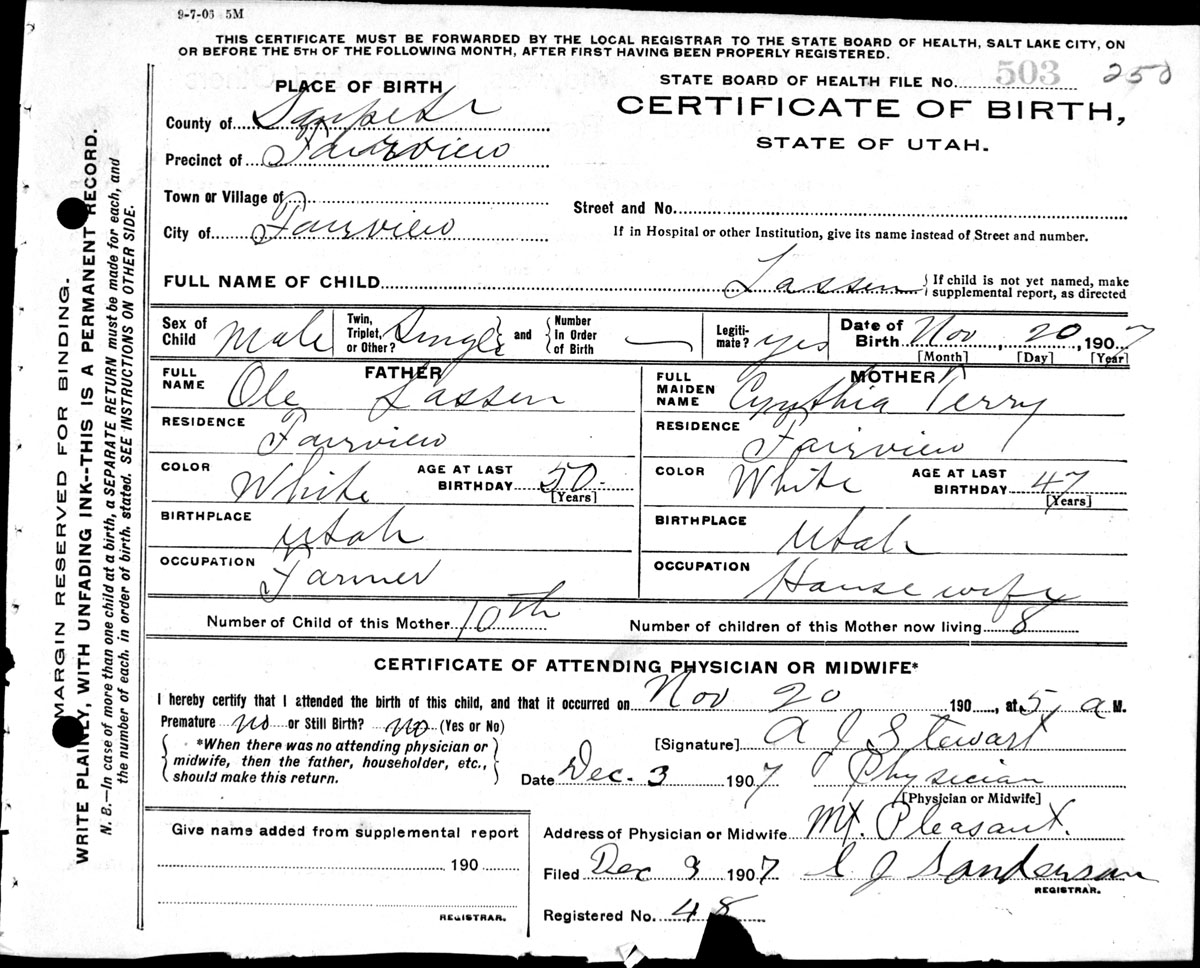 9-7-06 5M
THIS CERTIFICATE MUST BE FORWARDED BY THE LOCAL REGISTRAR TO THE STATE BOARD OF HEALTH, SALT LAKE CITY, ON
OR BEFORE THE 5TH OF THE FOLLOWING MONTH, AFTER FIRST HAVING BEEN PROPERLY REGISTERED.
PLACE OF BIRTH
STATE BOARD OF HEALTH FILE No. 503 250
CERTIFICATE OF BIRTH,
STATE OF UTAH.
County of Sanpete
Precinct of Fairview
Town or Village of
City of Fairview
Street and No.
If in Hospital or other Institution, give its name instead of Street and number.
FULL NAME OF CHILD Lassen { If child is not yet named, make
supplemental report, as directed
Sex of Child Male
Twin, Triplet, or Other? Single } and { Number In Order of Birth —
Legitimate? yes
Date of Birth Nov 20, 1907
[Month] [Day] [Year]
FATHER
FULL NAME Ole Lassen
RESIDENCE Fairview
COLOR White AGE AT LAST BIRTHDAY 50
[Years]
BIRTHPLACE Utah
OCCUPATION Farmer
MOTHER
FULL MAIDEN NAME Cynthia Terry
RESIDENCE Fairview
COLOR White AGE AT LAST BIRTHDAY 47
[Years]
BIRTHPLACE Utah
OCCUPATION House wife
Number of Child of this Mother 10th Number of children of this Mother now living 8
CERTIFICATE OF ATTENDING PHYSICIAN OR MIDWIFE*
I hereby certify that I attended the birth of this child, and that it occurred on Nov 20 190, at 5, a M.
Premature no or Still Birth? no (Yes or No)
{ *When there was no attending physician or
midwife, then the father, householder, etc.,
should make this return. }
[Signature] A J Stewart
Date Dec. 3 1907 Physician
[Physician or Midwife]
Give name added from supplemental report
190
REGISTRAR.
Address of Physician or Midwife Mt. Pleasant.
Filed Dec 3 1907 J Sanderson
REGISTRAR.
Registered No. 48
MARGIN RESERVED FOR BINDING.
WRITE PLAINLY, WITH UNFADING INK--THIS IS A PERMANENT RECORD.
N. B.—In case of more than one child at a birth, a SEPARATE RETURN must be made for each, and
the number of each, in order of birth, stated. SEE INSTRUCTIONS ON OTHER SIDE.